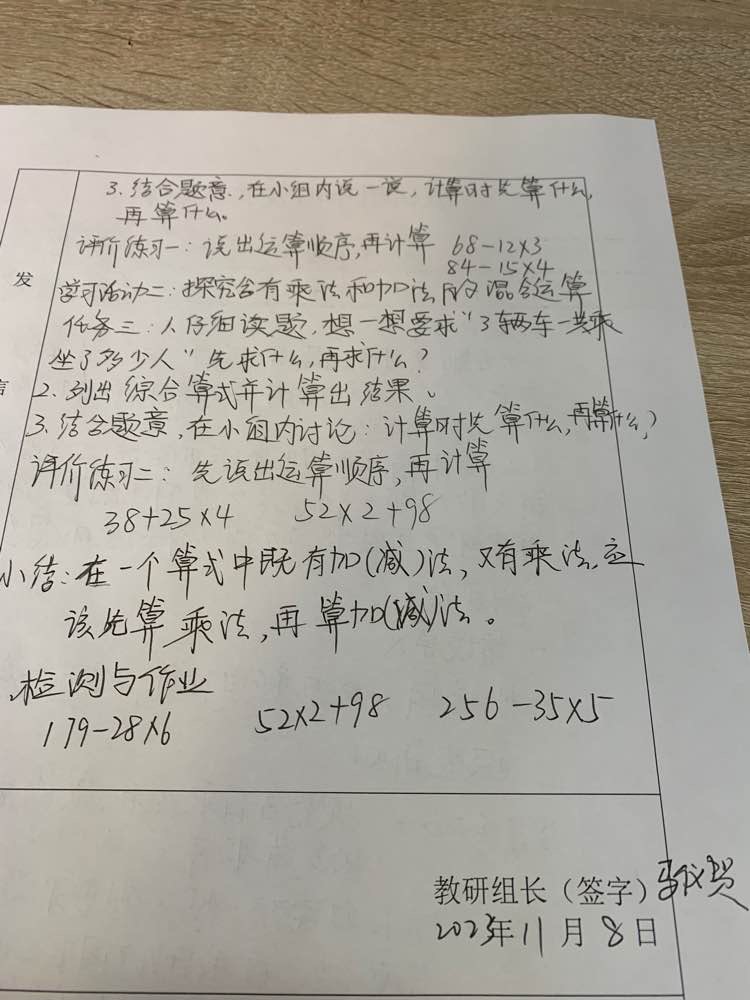 3. 结合题意,在小组内说一说,计算时先算什么,
再算什么。
评价练习一:说出运算顺序,再计算 68-12×3
84-15×4
发
学习活动二:探究含有乘法和加法的混合运算
任务三:1、仔细读题,想一想要求"3辆车一共乘
坐了多少人"先求什么,再求什么?
2. 列出综合算式并计算出结果。
3. 结合题意,在小组内讨论:计算时先算什么,再算什么?
评价练习二:先说出运算顺序,再计算
38+25×4 52×2+98
小结:在一个算式中既有加(减)法,又有乘法,应
该先算乘法,再算加(减)法。
检测与作业
179-28×6 52×2+98 256-35×5
教研组长(签字)
2023年11月8日